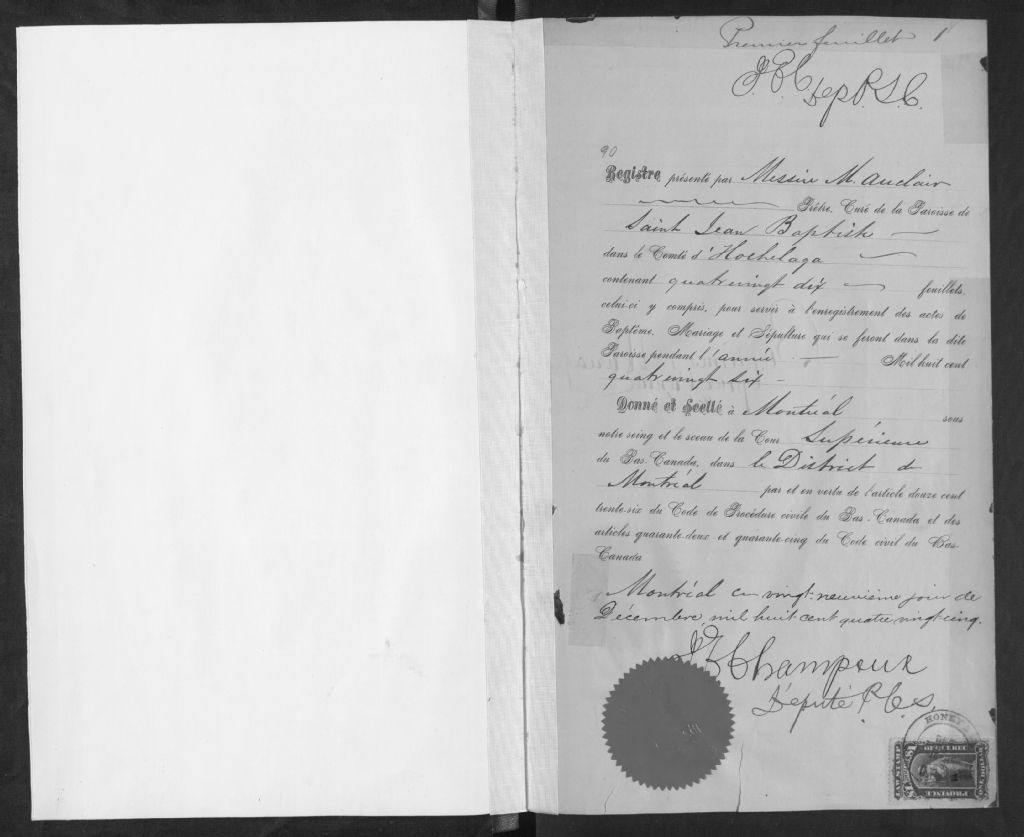 Premier feuillet 1
J.B.C Dep P.S.C.
90
Registre présenté par Messire M. Auclair
Prêtre, Curé de la Paroisse de
Saint Jean Baptiste
dans le Comté d'Hochelaga
contenant quatrevingt dix feuillets,
celui-ci y compris, pour servir à l'enregistrement des actes de
Baptême, Mariage et Sépulture qui se feront dans la dite
Paroisse pendant l'année Mil huit cent
quatrevingt six
Donné et Scellé à Montréal sous
notre seing et le sceau de la Cour Supérieure
du Bas-Canada, dans le District de
Montréal par et en vertu de l'article douze cent
trente-six du Code de Procédure civile du Bas-Canada et des
articles quarante-deux et quarante-cinq du Code civil du Bas-
Canada
Montréal ce vingt-neuvième jour de
Décembre mil huit cent quatre vingt-cinq.
Champoux
Député P.C.S.
HONEY
LAW STAMP
$1 OF QUEBEC $1
PROVINCE
ONE DOLLAR